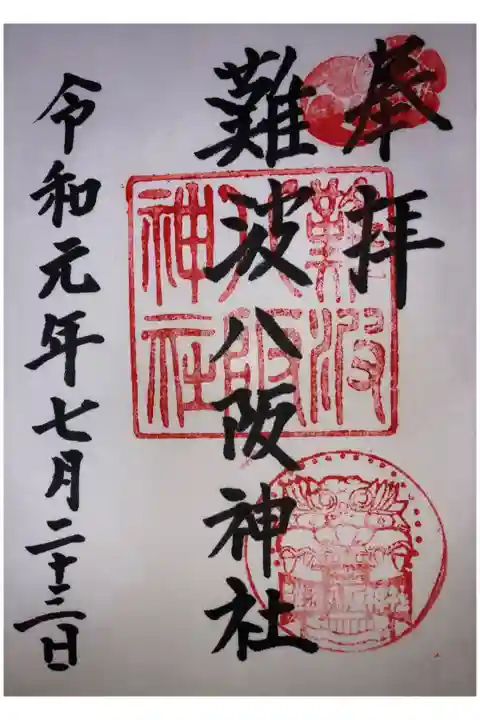 奉拝
難波八阪神社
令和元年七月二十三日
難波
八阪
神社